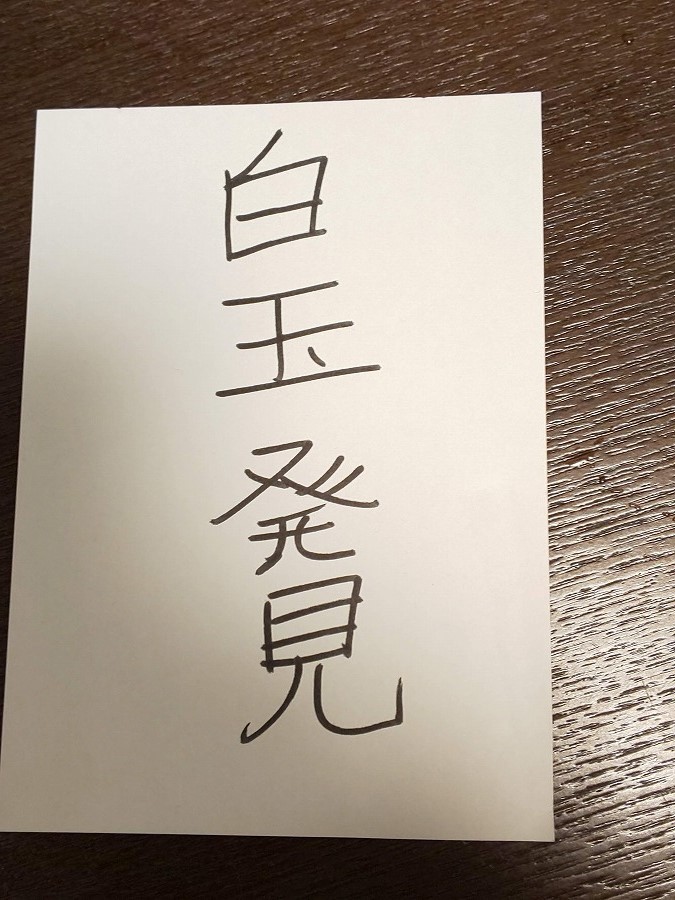 白玉発見